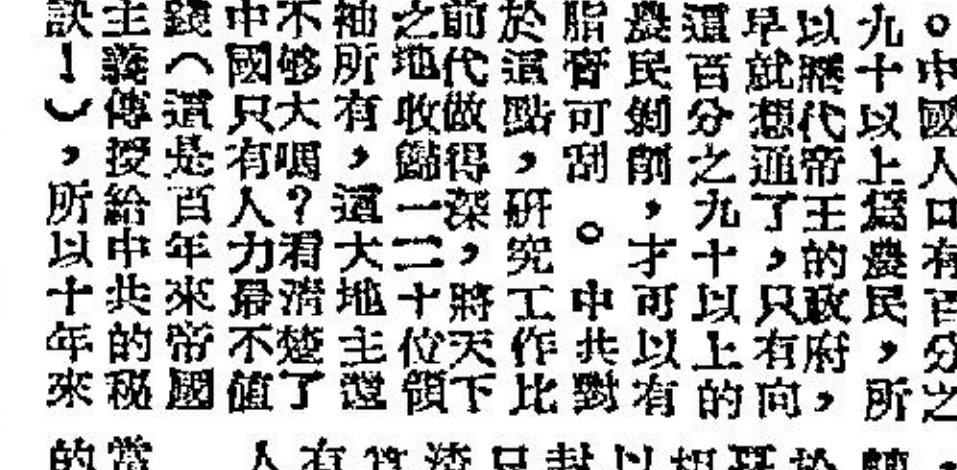 。中國人口有百分之
九十以上爲農民，所
以歷代帝王的政府，
早就想通了，只有向
這百分之九十以上的
農民剝削，才可以有
脂膏可刮。中共對
於這點，研究工作比
前代做得深，將天下
之地收歸一二十位領
袖所有，這大地主還
不够大嗎？看清楚了
中國只有人力最不值
錢（這是百年來帝國
主義傳授給中共的秘
訣！），所以十年來